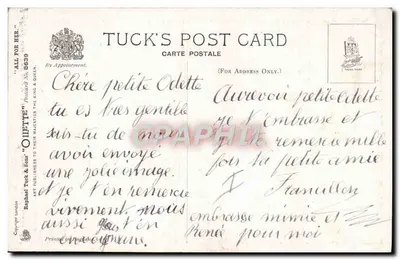 TUCK'S POST CARD
CARTE POSTALE
By Appointment.
(FOR ADDRESS ONLY.)
"ALL FOR HER."
Raphael Tuck & Sons' "OILETTE"
ART PUBLISHERS TO THEIR MAJESTIES THE KING & QUEEN.
Chère petite Odette
tu es très gentille
sais-tu de nous
avoir envoyé
une jolie image.
et je t'en remercie
vivement nous
aussi t'en
Aurevoir petite Odette
je t'embrasse et
je te remercie mille
fois ta petite amie
Francillon
embrasse mimie et
René pour moi